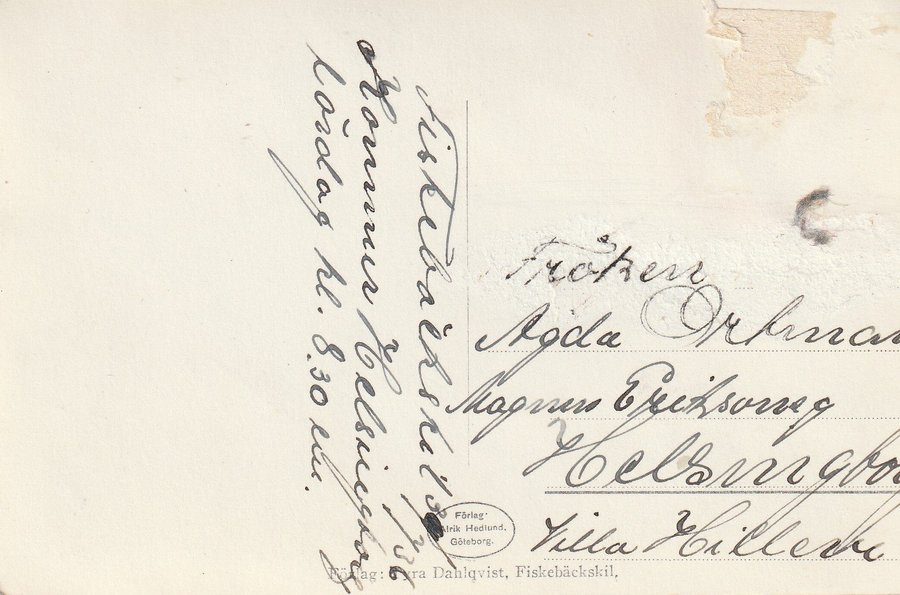 Fiskebäckskil
Kommer Helsingborg
lördag kl. 8.30 em.
Fröken
Agda Ortman
Magnus Eriksonsg
Helsingbor
Villa Hillevi
Förlag:
Alrik Hedlund,
Göteborg.
Förlag: Dahlqvist, Fiskebäckskil.